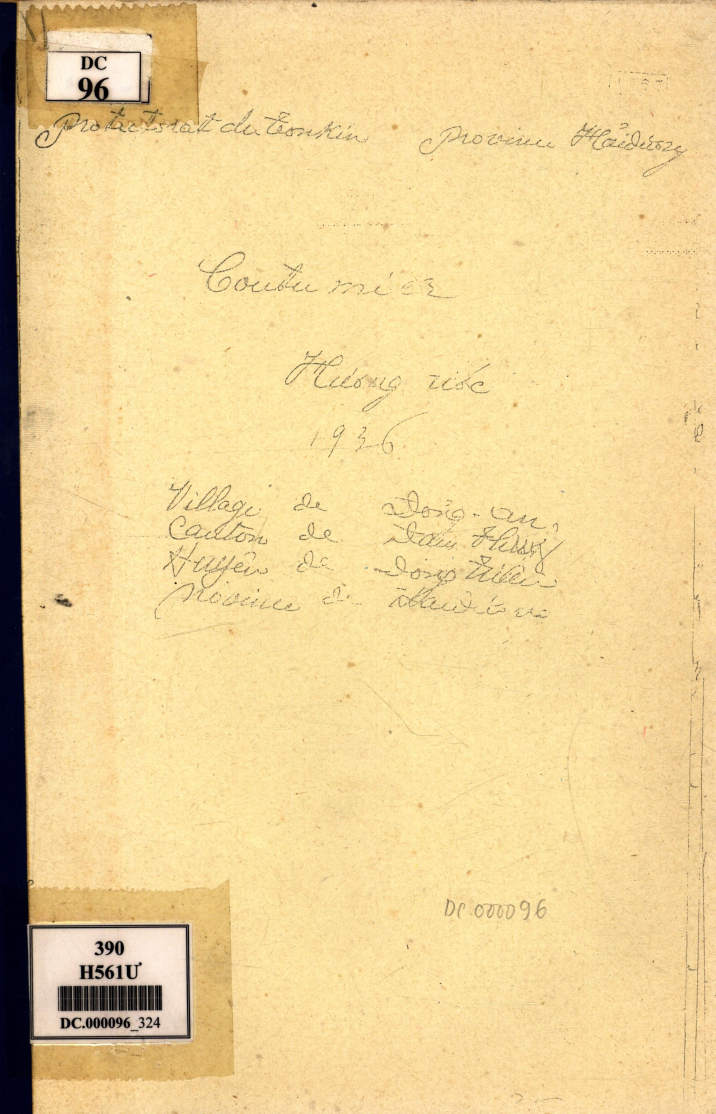 DC
96
Protectorat du Tonkin Province Hảidương
Coutumier
Hương ước
1936
Village de Đông-an
Canton de
Huyện de Đông Triều
Province de Haidương
DC.000096
390
H561Ư
DC.000096_324